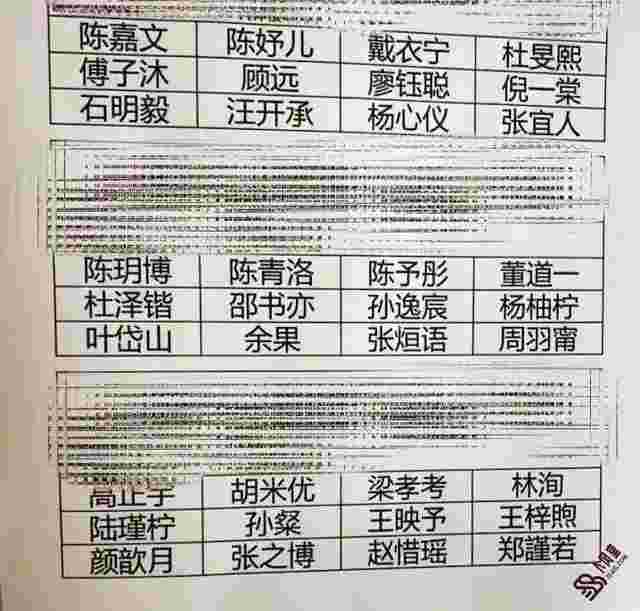 陈嘉文 陈妤儿 戴衣宁 杜旻熙
傅子沐 顾远 廖钰聪 倪一棠
石明毅 汪开承 杨心仪 张宜人
陈玥博 陈青洛 陈予彤 董道一
杜泽锴 邵书亦 孙逸宸 杨柚柠
叶岱山 余果 张烜语 周羽甯
高正宇 胡米优 梁孝考 林洵
陆瑾柠 孙粲 王映予 王梓煦
颜歆月 张之博 赵惜瑶 郑謹若